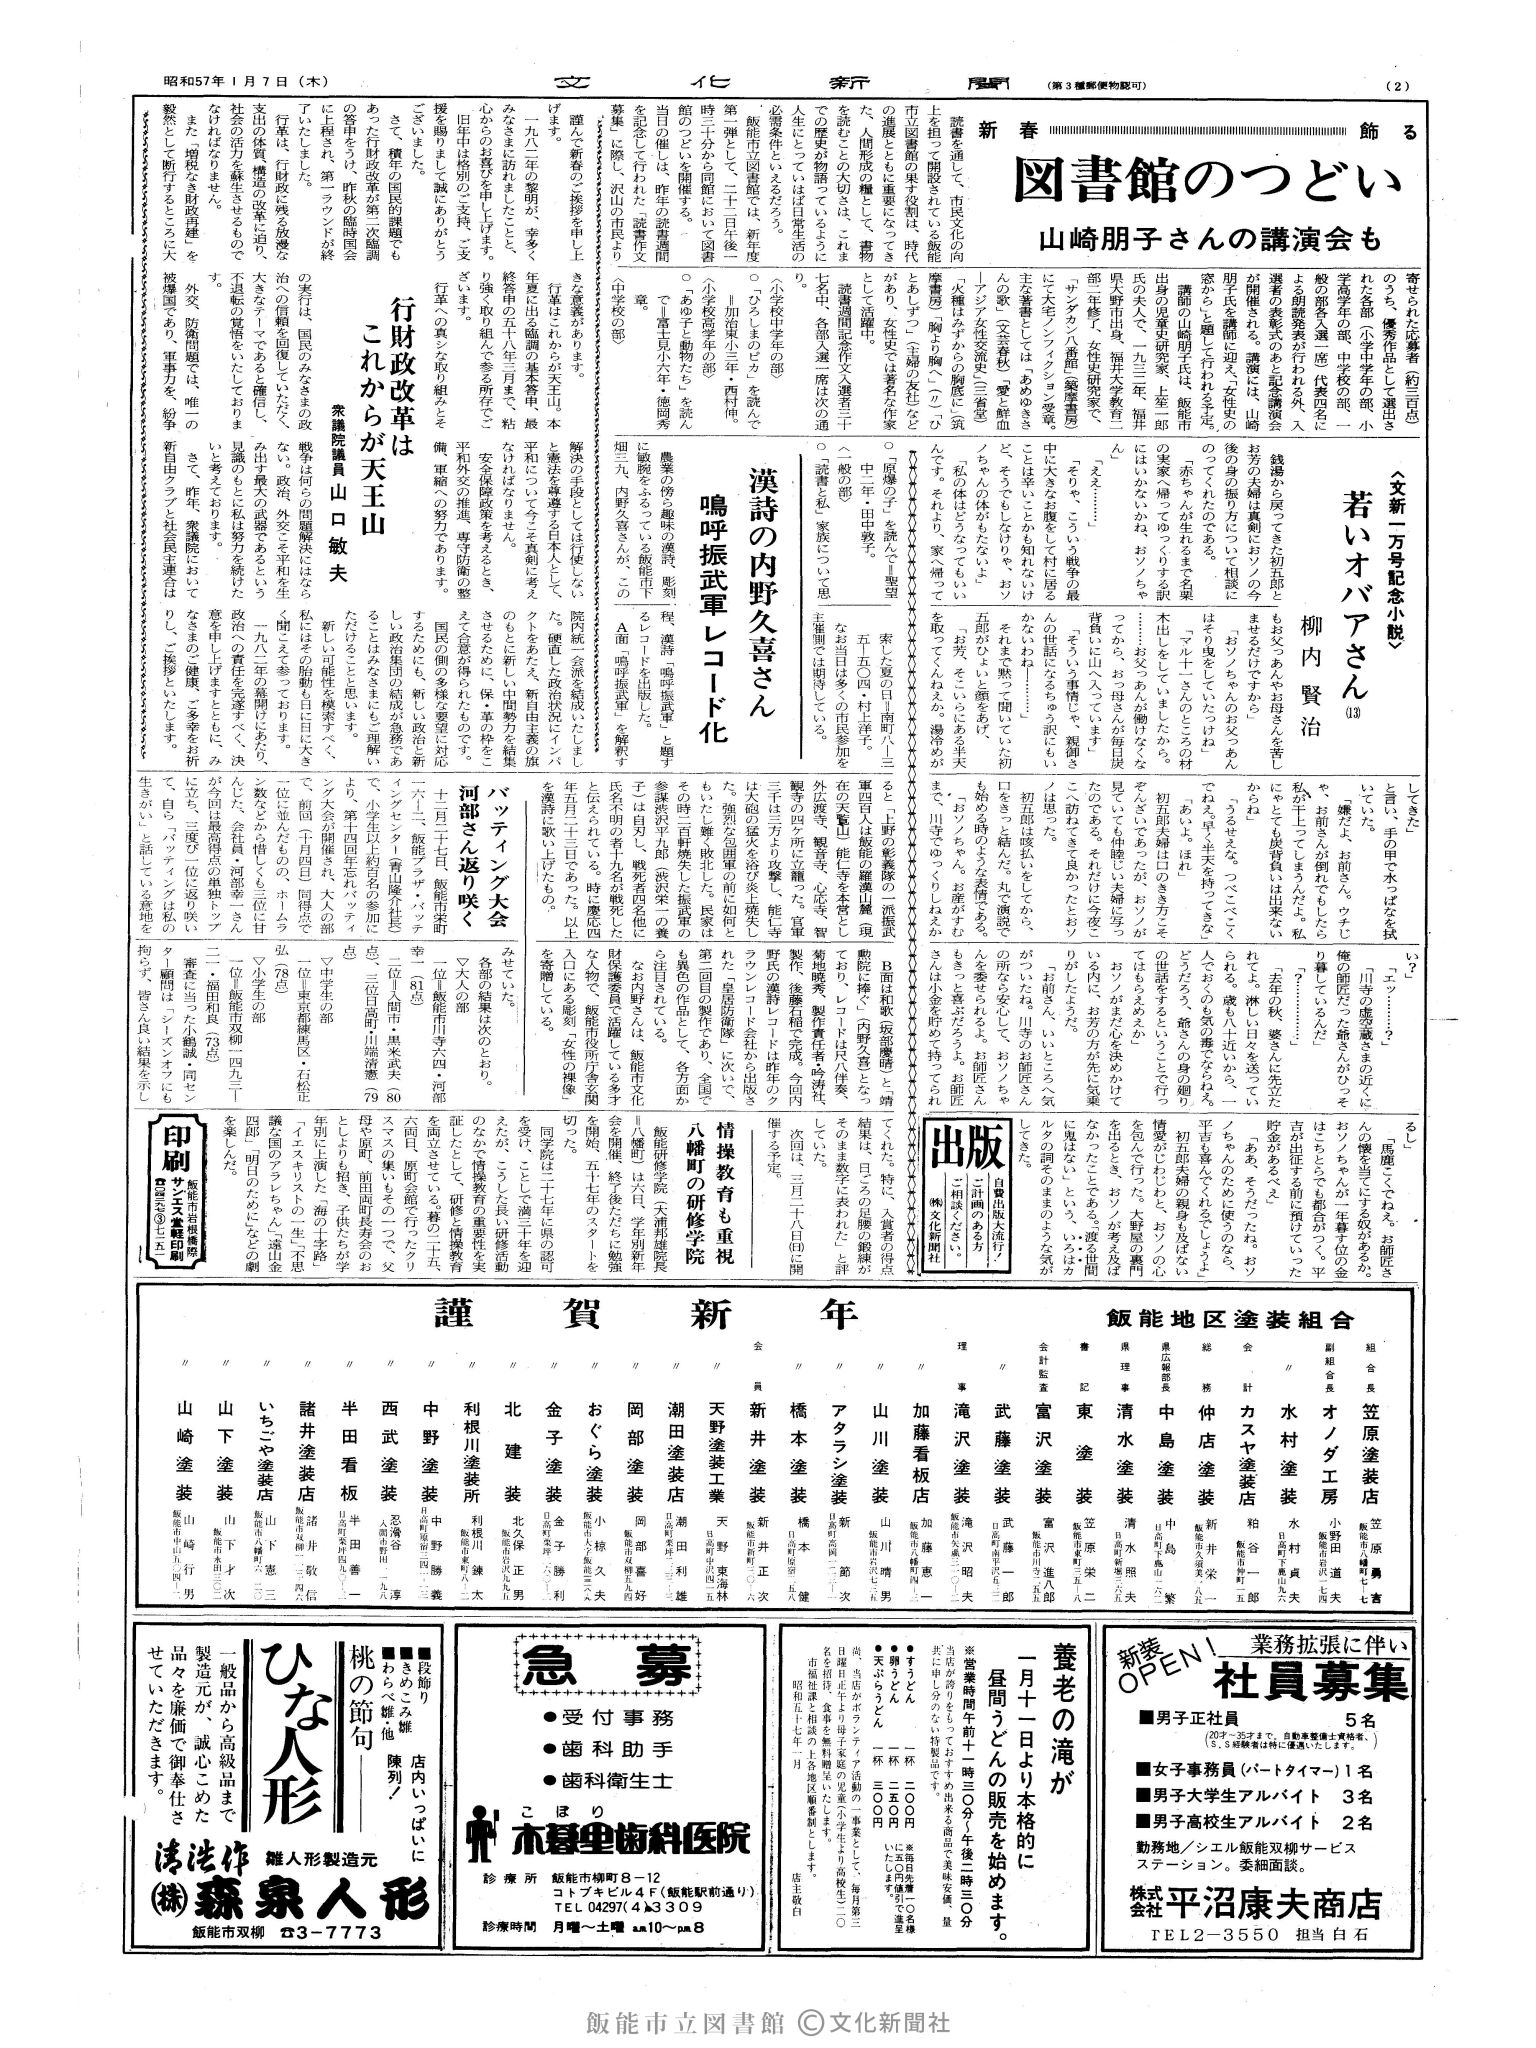 昭和57年1月7日（木）
文化新聞
（第3種郵便物認可）
（2）
新春
飾る
図書館のつどい
山崎朋子さんの講演会も
読書を通して、市民文化の向
上を担って開設されている飯能
市立図書館の果す役割は、時代
の進展とともに重要になってき
た、人間形成の糧として、書物
を読むことの大切さは、これま
での歴史が物語っているように
人生にとっていは日常生活の
必需条件といえるだろう。
飯能市立図書館では、新年度
第一弾として、二十三日午後一
時三十分から同館において図書
館のつどいを開催する。
当日の催しは、昨年の読書週間
を記念して行われた「読書作文
募集」に際し、沢山の市民より
寄せられた応募者（約三百点）
のうち、優秀作品として選出さ
れた各部（小学中学年の部、小
学高学年の部、中学校の部、一
般の部各入選一席）代表四名に
よる朗読発表が行われる外、入
選者の表彰式のあと記念講演会
が開催される。講演には、山崎
朋子氏を講師に迎え、「女性史の
窓から」と題して行われる予定。
講師の山崎朋子氏は、飯能市
出身の児童史研究家、上笙一郎
氏の夫人で、一九三二年、福井
県大野市出身、福井大学教育二
部二年修了、女性史研究家で、
「サンダカン八番館」（築摩書房）
にて大宅ノンフィクション受章。
主な著書としては「あめゆきさ
んの歌」（文芸春秋）「愛と鮮血
ーアジア女性交流史」（三省堂）
「火種はみずからの胸底に」（筑
摩書房）「胸より胸へ」（〃）「ひ
とあしずつ」（主婦の友社）など
があり、女性史では著名な作家
として活躍中。
読書週間記念作文入選者三十
七名中、各部入選一席は次の通
り。
〈小学校中学年の部〉
○「ひろしまのピカ」を読んで
＝加治東小三年・西村伸。
〈小学校高学年の部〉
○「あゆ子と動物たち」を読ん
で＝富士見小六年・徳岡秀
章。
〈中学校の部〉
○「原爆の子」を読んで＝聖望
中二年・田中敦子。
〈一般の部〉
○「読書と私」家族について思
索した夏の日＝南町八ー三
五ー五〇四・村上洋子。
なお当日は多くの市民参加を
主催側では期待している。
謹んで新春のご挨拶を申し上
げます。
一九八二年の黎明が、幸多く
みなさまに訪れましたことと、
心からのお喜びを申し上げます。
旧年中は格別のご支持、ご支
援を賜りまして誠にありがとう
ございました。
さて、積年の国民的課題でも
あった行財政改革が第二次臨調
の答申をうけ、昨秋の臨時国会
に上程され、第一ラウンドが終
了いたしました。
行革は、行財政に残る放漫な
支出の体質、構造の改革に迫り、
社会の活力を蘇生させるもので
なければなりません。
また「増税なき財政再建」を
毅然として断行するところに大
きな意義があります。
行革はこれからが天王山。本
年夏に出る臨調の基本答申、最
終答申の五十八年三月まで、粘
り強く取り組んで参る所存でご
ざいます。
行革への真しな取り組みとそ
行財政改革は
これからが天王山
衆議院議員 山口敏夫
の実行は、国民のみなさまの政
治への信頼を回復していただく、
大きなテーマであると確信し、
不退転の覚悟をいたしておりま
す。
外交、防衛問題では、唯一の
被爆国であり、軍事力を、紛争
解決の手段としては行使しない
と憲法を尊遵する日本人として、
平和について今こそ真剣に考え
なければなりません。
安全保障政策を考えるとき、
平和外交の推進、専守防衛の整
備、軍縮への努力であります。
戦争は何らの問題解決にはなら
ない。政治、外交こそ平和を生
み出す最大の武器であるという
見識のもとに私は努力を続けた
いと考えております。
さて、昨年、衆議院において
新自由クラブと社会民主連合は
院内統一会派を結成いたしまし
た。硬直した政治状況にインパ
クトをあたえ、新自由主義の旗
のもとに新しい中間勢力を結集
させるために、保・革の枠をこ
えて合意が得られたものです。
国民の側の多様な要望に対応
するためにも、新しい政治と新
しい政治集団の結成が急務であ
ることはみなさまにもご理解い
ただけることと思います。
新しい可能性を模索すべく、
私にはその胎動も日に日に大き
く聞こえて参っております。
一九八二年の幕開けにあたり、
政治への責任を完遂すべく、決
意を申し上げますとともに、み
なさまのご健康、ご多幸をお祈
りし、ご挨拶といたします。
漢詩の内野久喜さん
嗚呼振武軍レコード化
農業の傍ら趣味の漢詩、彫刻
に敏腕をふるっている飯能市下
畑三九、内野久喜さんが、この
程、漢詩「嗚呼振武軍」と題す
るレコードを出版した。
A面「嗚呼振武軍」を解釈す
ると「上野の彰義隊の一派振武
軍四百人は飯能の羅漢山麓（現
在の天覧山）能仁寺を本営とし
外広渡寺、観音寺、心応寺、智
観寺の四ケ所に立籠った。官軍
三千は三方より攻撃し、能仁寺
は大砲の猛火を浴び炎上焼失し
た。強烈な包囲軍の前に如何と
もいたし難く敗北した。民家は
その時二百軒焼失した振武軍の
参謀渋沢平九郎（渋沢栄一の養
子）は自刃し、戦死者四名他に
氏名不明の者十九名が戦死した
と伝えられている。時に慶応四
年五月二十三日であった。以上
を漢詩に歌い上げたもの。
B面は和歌（坂部慶晴）と「靖
勲院に捧ぐ」（内野久喜）となっ
ており、レコードは尺八伴奏、
菊地暁秀、製作責任者・吟涛社、
製作、後藤石稲で完成。今回内
野氏の漢詩レコードは昨年のク
ラウンレコード会社から出版さ
れた「皇居防衛隊」に次いで、
第二回目の製作であり、全国で
も異色の作品として、各方面か
ら注目されている。
なお内野さんは、飯能市文化
財保護委員で活躍している多才
な人物で、飯能市役所庁舎玄関
入口にある彫刻、"女性の裸像"
を寄贈している。
〈文新一万号記念小説〉
若いオバアさん（13）
柳内賢治
銭湯から戻ってきた初五郎と
お芳の夫婦は真剣におソノの今
後の身の振り方について相談に
のってくれたのである。
「赤ちゃんが生れるまで名栗
の実家へ帰ってゆっくりする訳
にはいかないかね、おソノちゃ
ん」
「ええ………」
「そりゃ、こういう戦争の最
中に大きなお腹をして村に居る
ことは辛いことかも知れないけ
ど、そうでもしなけりゃ、おソ
ノちゃんの体がもたないよ」
「私の体はどうなってもいい
んです。それより、家へ帰って
もお父っあんやお母さんを苦し
ませるだけですから」
「おソノちゃんのお父っあん
はそり曳をしていたっけね」
「マル十一さんのところの材
木出しをしていましたから。
……お父っあんが働けなくな
ってから、おっ母さんが毎日炭
背負いに山へ入っています」
「そういう事情じゃ、親御さ
んの世話になるちゅう訳にもい
かないわね———」
それまで黙って聞いていた初
五郎がひょいと顔をあげ、
「お芳、そこいらにある半天
を取ってくんねえか。湯冷めが
してきた」
と言い、手の甲で水っぱなを拭
「嫌だよ、お前さん。ウチじ
ゃ、お前さんが倒れでもしたら
私が上ってしまうんだよ。私
にゃとても炭背負いは出来ない
からね」
「うるせえな。つべこべこく
でねえ。早く半天を持ってきな」
「あいよ。ほれ」
初五郎夫婦は口のきき方こそ
ぞんざいであったが、おソノが
見ていても仲睦じい夫婦に写っ
たのである。それだけに今夜こ
こへ訪ねてきて良かったとおソ
ノは思った。
初五郎は咳払いをしてから、
口をきっと結んだ。丸で演説で
も始める時のような表情である。
「おソノちゃん。お産がすむ
まで、川寺でゆっくりしねえか
い？」
「エッ………？」
「川寺の虚空蔵さまの近くに
俺の師匠だった爺さんがひっそ
り暮しているんだ」
「？………」
「去年の秋、婆さんに先立た
れてよ。淋しい日々を送ってい
られる。歳も八十近いから、一
人でおくのも気の毒でならねえ。
どうだろう、爺さんの身の廻り
の世話をするということで行っ
てはもらえめえか」
おソノがまだ心を決めかけて
いる内に、お芳の方が先に気乗
りがしたようだ。
「お前さん、いいところへ気
がついたね。川寺のお師匠さん
の所なら安心して、おソノちゃ
んを委せられるよ。お師匠さん
もきっと喜ぶだろうよ。お師匠
さんは小金を貯めて持ってられ
るし」
「馬鹿こくでねえ。お師匠さ
んの懐を当てにする奴があるか。
おソノちゃんが一年暮す位の金
はこちとらでも都合がつく。平
吉が出征する前に預けていった
貯金があるべえ」
「ああ、そうだったね。おソ
ノちゃんのために使うのなら、
平吉も喜んでくれるでしょうよ」
初五郎夫婦の親身も及ばない
情愛がじわじわと、おソノの心
を包んで行った。大野屋の裏門
を出るとき、おソノが考え及ば
なかったことである。"渡る世間
に鬼はない"という、いろはカ
ルタの詞そのままのような気が
してきた。
バッティング大会
河部さん返り咲く
十二月二十七日、飯能市栄町
一六ー二、飯能プラザ・バッテ
ィングセンター（青山隆介社長）
で、小学生以上約百名の参加に
より、第十四回年忘れバッティ
ング大会が開催され、大人の部
で、前回（十月四日）同得点で
一位に並んだものの、ホームラ
ン数などから惜しくも三位に甘
んじた、会社員・河部幸一さん
が今回は最高得点の単独トップ
に立ち、三度び一位に返り咲い
て、自ら「バッティングは私の
生きがい」と話している意地を
みせていた。
各部の結果は次のとおり。
▽大人の部
一位＝飯能市川寺六四・河部
幸一（81点）
二位＝入間市・黒米武夫（80
点）、三位日高町・川端清憲（79
点）
▽中学生の部
一位＝東京都練馬区・石松正
弘（78点）
▽小学生の部
一位＝飯能市双柳一四九三ー
二一・福田和良（73点）
審査に当った小鶴誠・同セン
ター顧問は「シーズンオフにも
拘らず、皆さん良い結果を示し
てくれた。特に、入賞者の得点
結果は、日ごろの足腰の鍛練が
そのまま数字に表われた」と評
していた。
次回は、三月二十八日（日）に開
催する予定。
情操教育も重視
八幡町の研修学院
飯能研修学院（大浦邦雄院長
＝八幡町）は六日、学年別新年
会を開催、終了後ただちに勉強
を開始、五十七年のスタートを
切った。
同学院は二十七年に県の認可
を受け、ことしで満三十年を迎
えたが、こうした長い研修活動
のなかで情操教育の重要性を実
証したとして、研修と情操教育
を両立させている。暮の二十五、
六両日、原町会館で行ったクリ
スマスの集いもその一つで、父
母や原町、前田両町長寿会のお
としよりも招き、子供たちが学
年別に上演した「海の十字路」
「イエスキリストの一生」「不思
議な国のアラレちゃん」「遠山金
四郎」「明日のために」などの劇
を楽しんだ。
出版
自費出版大流行！
ご計画のある方
ご相談ください。
㈱文化新聞社
印刷
飯能市岩根橋際
サンエス堂軽印刷
☎〇四二九七③七一五一
謹賀新年
飯能地区塗装組合
組合長 笠原塗装店 笠原勇吉
副組合長 オノダ工房 小野田道夫
〃 水村塗装 水村貞夫
会計 カスヤ塗装店 粕谷一郎
総務 仲店塗装 新井栄一
県広報部長 中島塗装 中島繁
県理事 清水塗装 清水照夫
書記 東塗装 笠原栄二
会計監査 富沢塗装 富沢進八郎
〃 武藤塗装 武藤一郎
理事 滝沢塗装 滝沢昭夫
〃 加藤看板店 加藤恵一
〃 山川塗装 山川晴男
〃 アタラシ塗装 新節次
〃 橋本塗装 橋本健
会員 新井塗装 新井正次
〃 天野塗装工業 天野東海林
〃 潮田塗装店 潮田利雄
〃 岡部塗装 岡部喜好
〃 おぐら塗装 小椋久夫
〃 金子塗装 金子勝利
〃 北建装 北久保正男
〃 利根川塗装所 利根川錬太
〃 中野塗装 中野勝義
〃 西武塗装 忍滑谷淳
〃 半田看板 半田善一
〃 諸井塗装店 諸井敬信
〃 いちごや塗装店 山下憲三
〃 山下塗装 山下才次
〃 山崎塗装 山崎行男
新装OPEN！
業務拡張に伴い
社員募集
■男子正社員 5名
（20才〜35才まで。自動車整備士資格者、
S.S経験者は特に優遇いたします。）
■女子事務員（パートタイマー）1名
■男子大学生アルバイト 3名
■男子高校生アルバイト 2名
勤務地／シエル飯能双柳サービス
ステーション。委細面談。
株式会社 平沼康夫商店
TEL2-3550 担当 白石
養老の滝が
一月十一日より本格的に
昼間うどんの販売を始めます。
※営業時間午前十一時三〇分〜午後二時三〇分
当店が誇りをもっておすすめ出来る商品で美味安価、量
共に申し分のない特製品です。
●すうどん 一杯 二〇〇円
●卵うどん 一杯 二五〇円
●天ぷらうどん 一杯 三〇〇円
※毎日先着一〇名様
に五〇円値引で進呈
いたします。
尚、当店がボランティア活動の一事業として、毎月第三
日曜日正午より母子家庭の児童（小学生より高校生）二〇
名を招待、食事を無料贈呈いたします。
市福祉課と相談の上各地区順番制とします。
昭和五十七年一月 店主敬白
急募
●受付事務
●歯科助手
●歯科衛生士
こぼり
木暮里歯科医院
診療所 飯能市柳町8-12
コトブキビル4F（飯能駅前通り）
TEL 04297(4)3309
診療時間 月曜〜土曜 am10〜pm8
■段飾り
■きめこみ雛
■わらべ雛・他
店内いっぱいに
陳列！
桃の節句
ひな人形
一般品から高級品まで
製造元が、誠心こめた
品々を廉価で御奉仕さ
せていただきます。
清浩作 雛人形製造元
㈱森泉人形
飯能市双柳 ☎3-7773
飯能市立図書館 ©文化新聞社